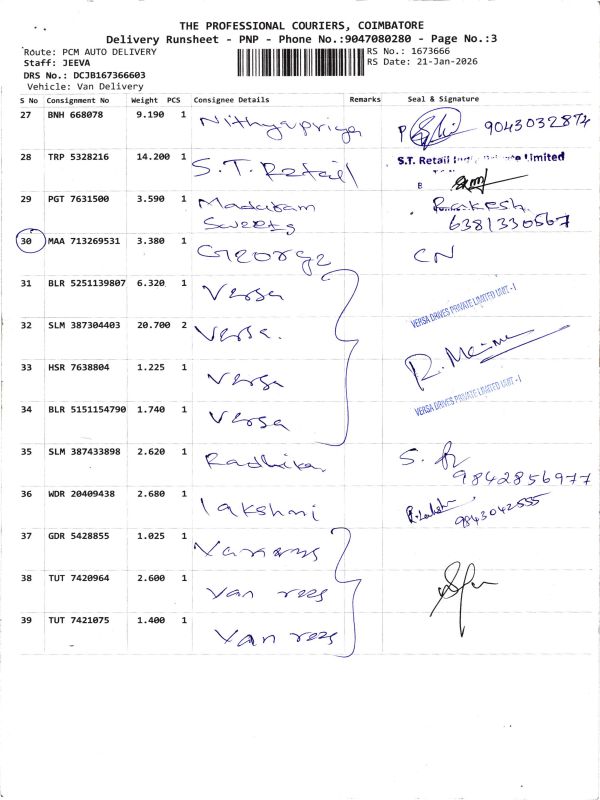 THE PROFESSIONAL COURIERS, COIMBATORE
Delivery Runsheet - PNP - Phone No.:9047080280 - Page No.:3
Route: PCM AUTO DELIVERY RS No.: 1673666
Staff: JEEVA RS Date: 21-Jan-2026
DRS No.: DCJB167366603
Vehicle: Van Delivery
S No Consignment No Weight PCS Consignee Details Remarks Seal & Signature
27 BNH 668078 9.190 1 Nithyapriya 9043032874
28 TRP 5328216 14.200 1 S.T. Retail S.T. Retail Limited
B
29 PGT 7631500 3.590 1 Madutam Rakesh
Sweets 6381330567
30 MAA 713269531 3.380 1 George CN
31 BLR 5251139807 6.320 1 Versa VERSA DRIVES PRIVATE LIMITED UNIT-I
32 SLM 387304403 20.700 2 Versa.
33 HSR 7638804 1.225 1 Versa
34 BLR 5151154790 1.740 1 Versa VERSA DRIVES PRIVATE LIMITED UNIT-I
35 SLM 387433898 2.620 1 Radhika S.
9842856977
36 WDR 20409438 2.680 1 lakshmi 9843042555
37 GDR 5428855 1.025 1
38 TUT 7420964 2.600 1 Van rees
39 TUT 7421075 1.400 1 Van rees